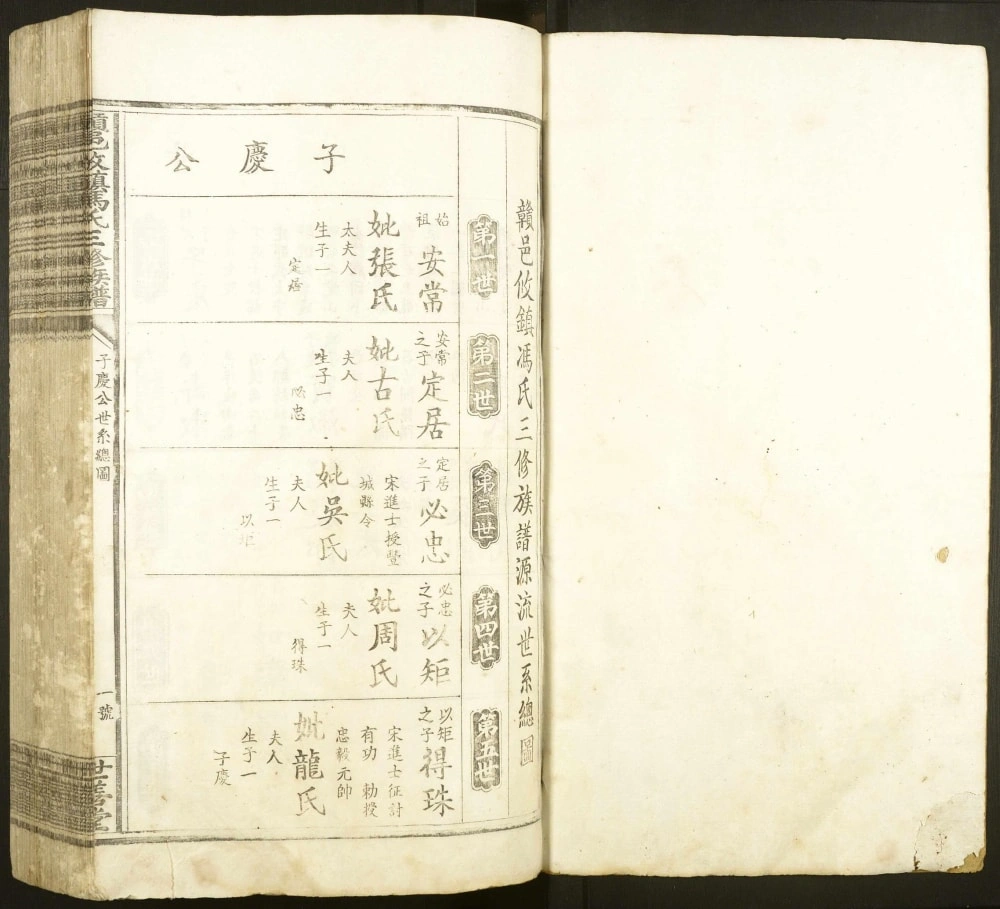 贛邑攸鎮馮氏三修族譜源流世系總圖
子慶公
第一世
始祖
安常
妣張氏
太夫人
生子一
定居
第二世
安常之子
定居
妣古氏
夫人
生子一
必忠
第三世
定居之子
必忠
宋進士授豐城縣令
妣吳氏
夫人
生子一
以矩
第四世
必忠之子
以矩
妣周氏
夫人
生子一
得珠
第五世
以矩之子
得珠
宋進士征討有功 勅授忠毅元帥
妣龍氏
夫人
生子一
子慶
贛邑攸鎮馮氏三修族譜
子慶公世系總圖
一號
世善堂